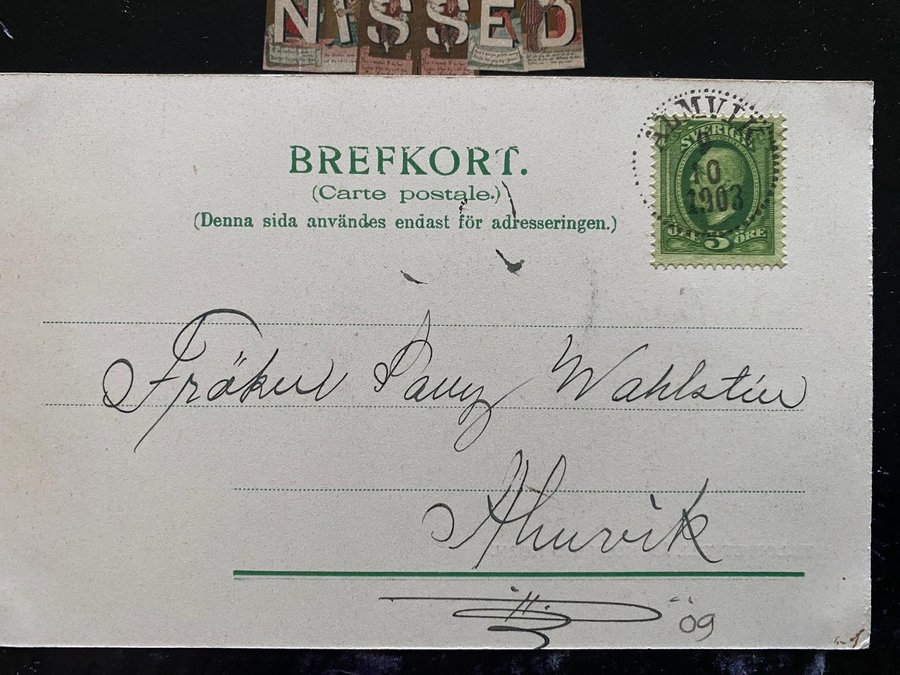 NISSED
BREFKORT.
(Carte postale.)
(Denna sida användes endast för adresseringen.)
SVERIGE
10
1903
5 ÖRE
Fröken Fanny Wahlstén
Almvik
09